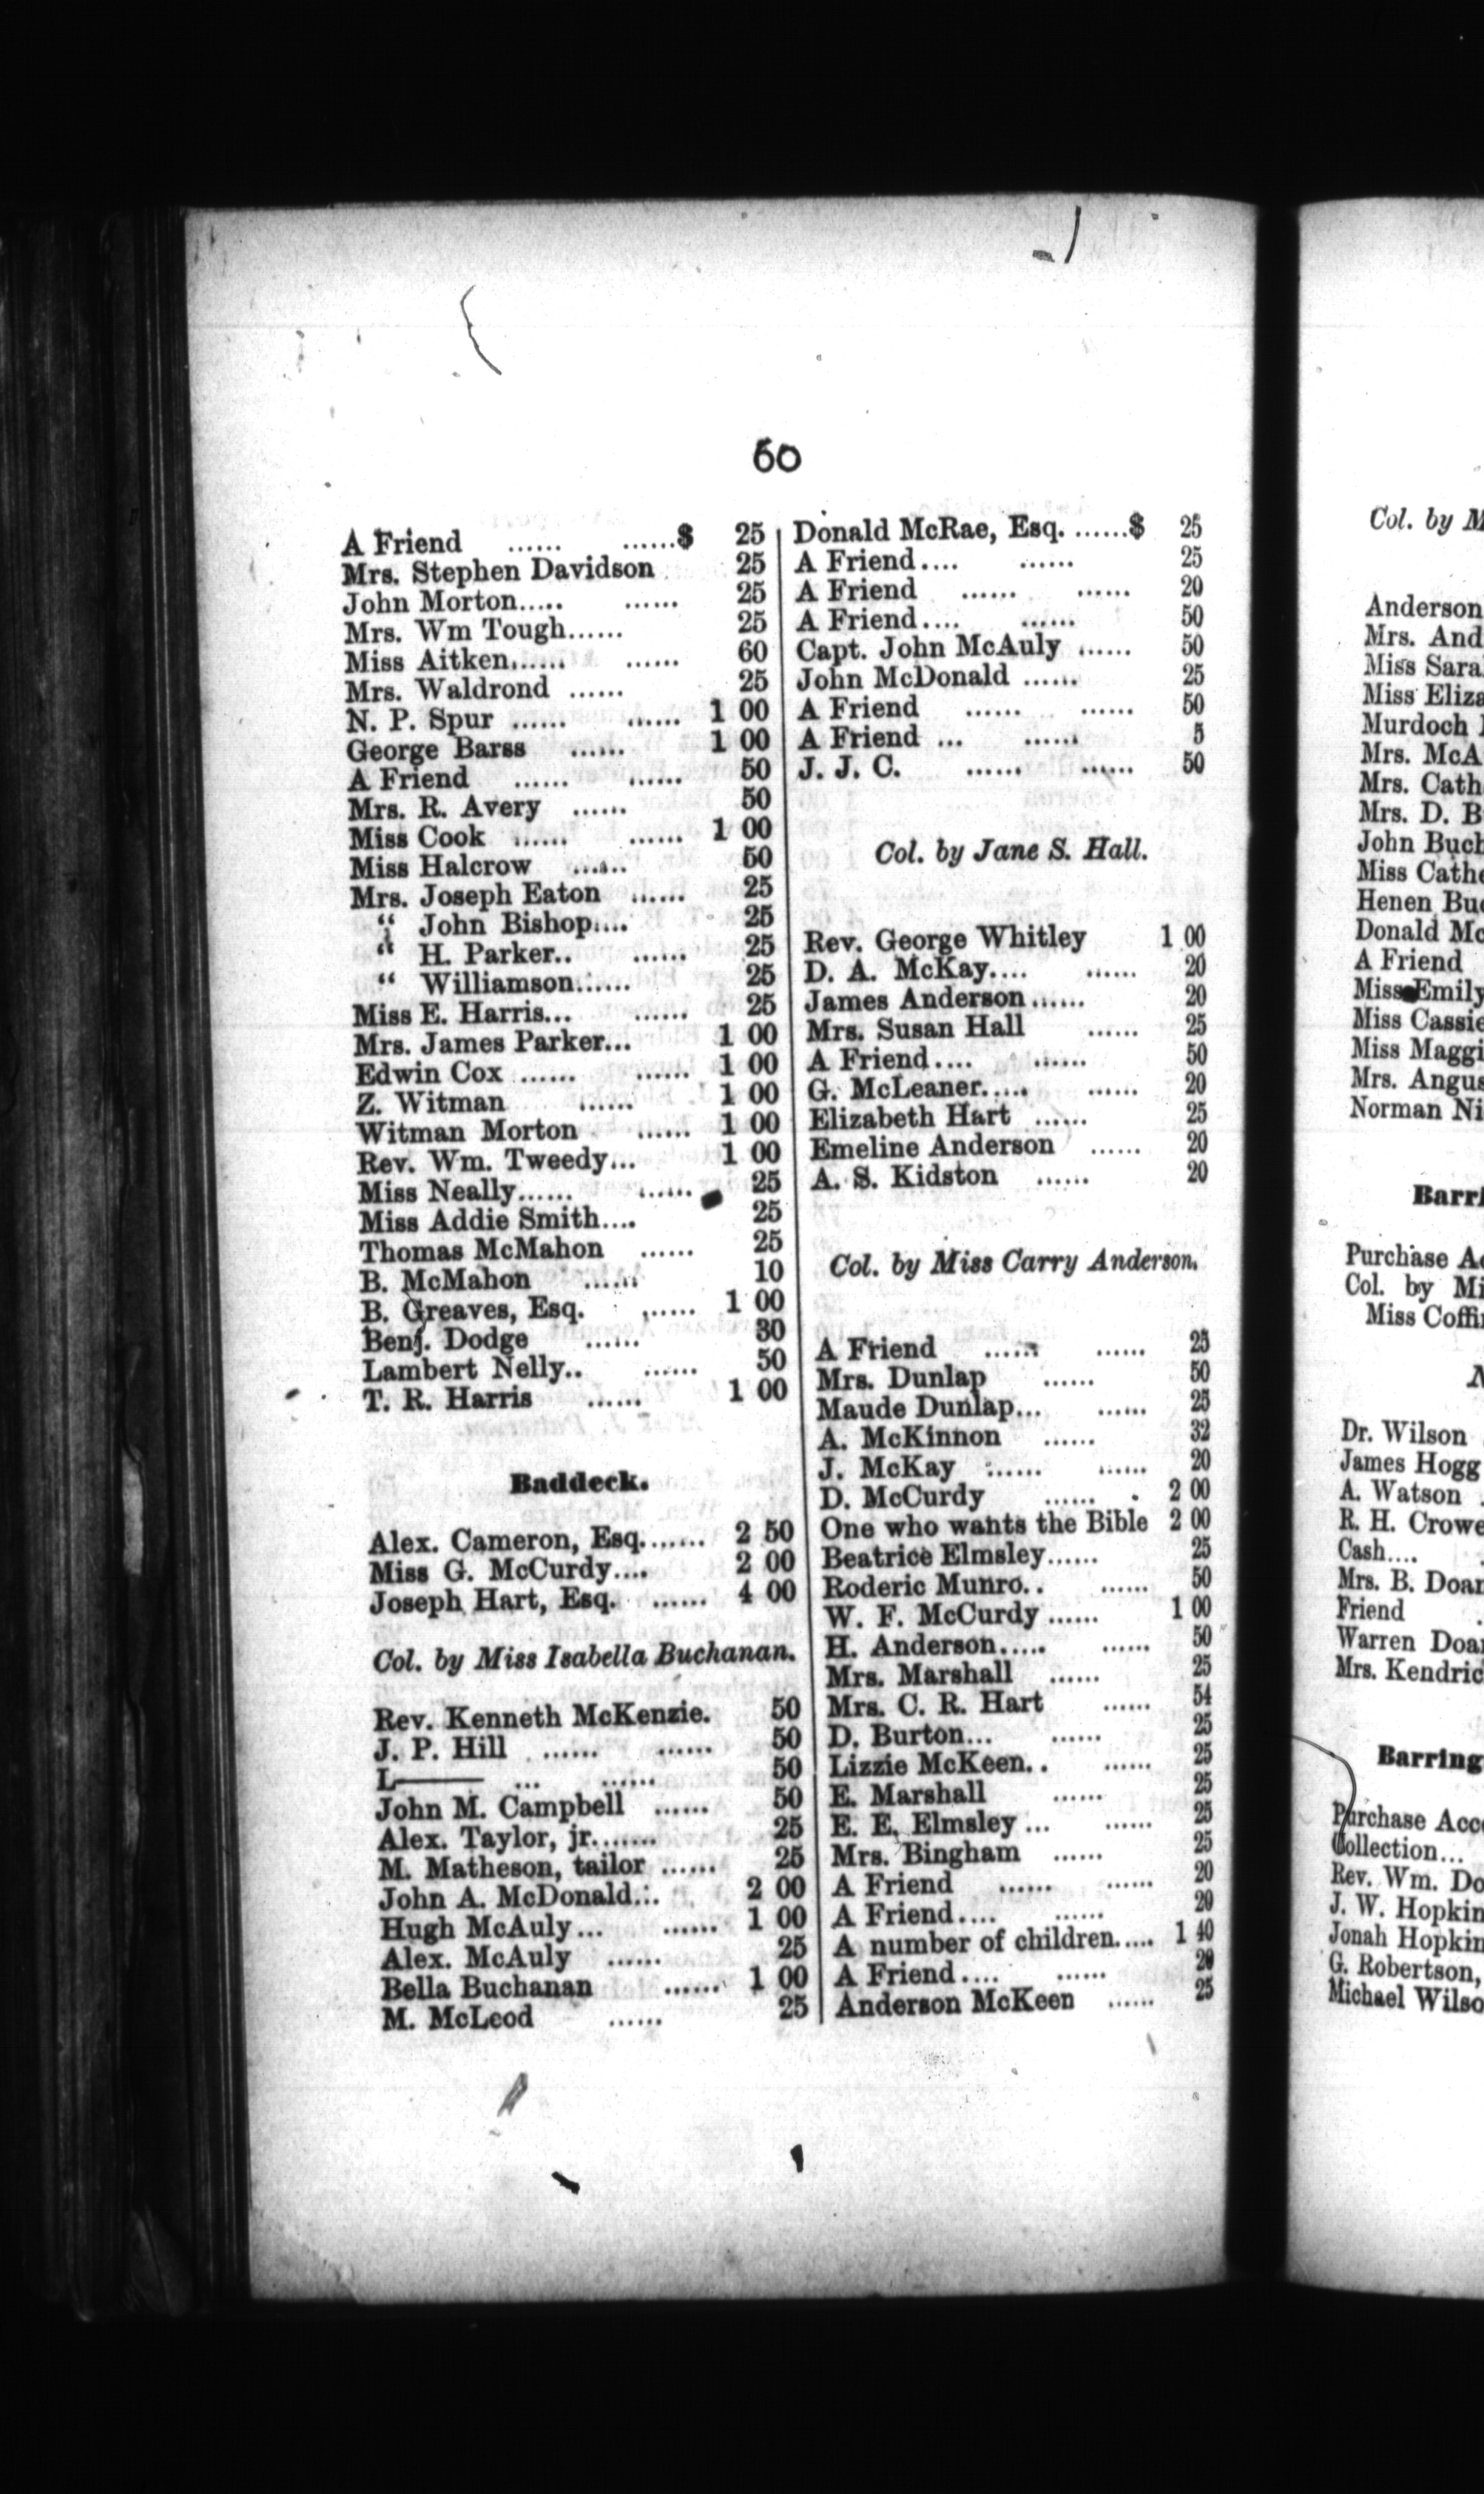 60
A Friend ...... ......$ 25
Mrs. Stephen Davidson 25
John Morton..... ...... 25
Mrs. Wm Tough...... 25
Miss Aitken...... ...... 60
Mrs. Waldrond ...... 25
N. P. Spur ...... ...... 1 00
George Barss ...... 1 00
A Friend ...... ...... 50
Mrs. R. Avery ...... 50
Miss Cook ...... ...... 1 00
Miss Halcrow ...... 50
Mrs. Joseph Eaton ...... 25
“ John Bishop.... 25
“ H. Parker.. ...... 25
“ Williamson...... 25
Miss E. Harris... ...... 25
Mrs. James Parker... 1 00
Edwin Cox ...... ...... 1 00
Z. Witman ...... 1 00
Witman Morton ...... 1 00
Rev. Wm. Tweedy... 1 00
Miss Neally...... ...... 25
Miss Addie Smith.... 25
Thomas McMahon ...... 25
B. McMahon ...... 10
B. Greaves, Esq. ...... 1 00
Benj. Dodge ...... 30
Lambert Nelly.. ...... 50
T. R. Harris ...... 1 00
Baddeck.
Alex. Cameron, Esq....... 2 50
Miss G. McCurdy.... 2 00
Joseph Hart, Esq. ...... 4 00
Col. by Miss Isabella Buchanan.
Rev. Kenneth McKenzie. 50
J. P. Hill ...... ...... 50
L—— ... ...... 50
John M. Campbell ...... 50
Alex. Taylor, jr....... 25
M. Matheson, tailor ...... 25
John A. McDonald... 2 00
Hugh McAuly... ...... 1 00
Alex. McAuly ...... 25
Bella Buchanan ...... 1 00
M. McLeod ...... 25
Donald McRae, Esq. ......$ 25
A Friend.... ...... 25
A Friend ...... ...... 20
A Friend.... ...... 50
Capt. John McAuly ...... 50
John McDonald ...... 25
A Friend ...... ...... 50
A Friend ... ...... 5
J. J. C. ...... ...... 50
Col. by Jane S. Hall.
Rev. George Whitley 1 00
D. A. McKay.... ...... 20
James Anderson...... 20
Mrs. Susan Hall ...... 25
A Friend.... ...... 50
G. McLeaner..... ...... 20
Elizabeth Hart ...... 25
Emeline Anderson ...... 20
A. S. Kidston ...... 20
Col. by Miss Carry Anderson.
A Friend ...... ...... 25
Mrs. Dunlap ...... 50
Maude Dunlap... ...... 25
A. McKinnon ...... 32
J. McKay ...... ...... 20
D. McCurdy ...... 2 00
One who wants the Bible 2 00
Beatrice Elmsley...... 25
Roderic Munro.. ...... 50
W. F. McCurdy ...... 1 00
H. Anderson..... ...... 50
Mrs. Marshall ...... 25
Mrs. C. R. Hart ...... 54
D. Burton... ...... 25
Lizzie McKeen.. ...... 25
E. Marshall ...... 25
E. E. Elmsley ... ...... 25
Mrs. Bingham ...... 25
A Friend ...... ...... 20
A Friend.... ...... 20
A number of children..... 1 40
A Friend.... ...... 20
Anderson McKeen ...... 25
Col. by
Anderson
Mrs.
Miss
Miss
Murdoch
Mrs.
Mrs.
Mrs. D.
John
Miss
Henen
Donald
A Friend
Miss Emily
Miss Cassie
Miss
Mrs. Angus
Norman
Purchase
Col. by
Miss
Dr. Wilson
James Hogg
A. Watson
R. H. Crowe
Cash....
Mrs. B.
Friend
Warren
Mrs.
Purchase
Collection...
Rev. Wm.
J. W.
Jonah
G. Robertson,
Michael